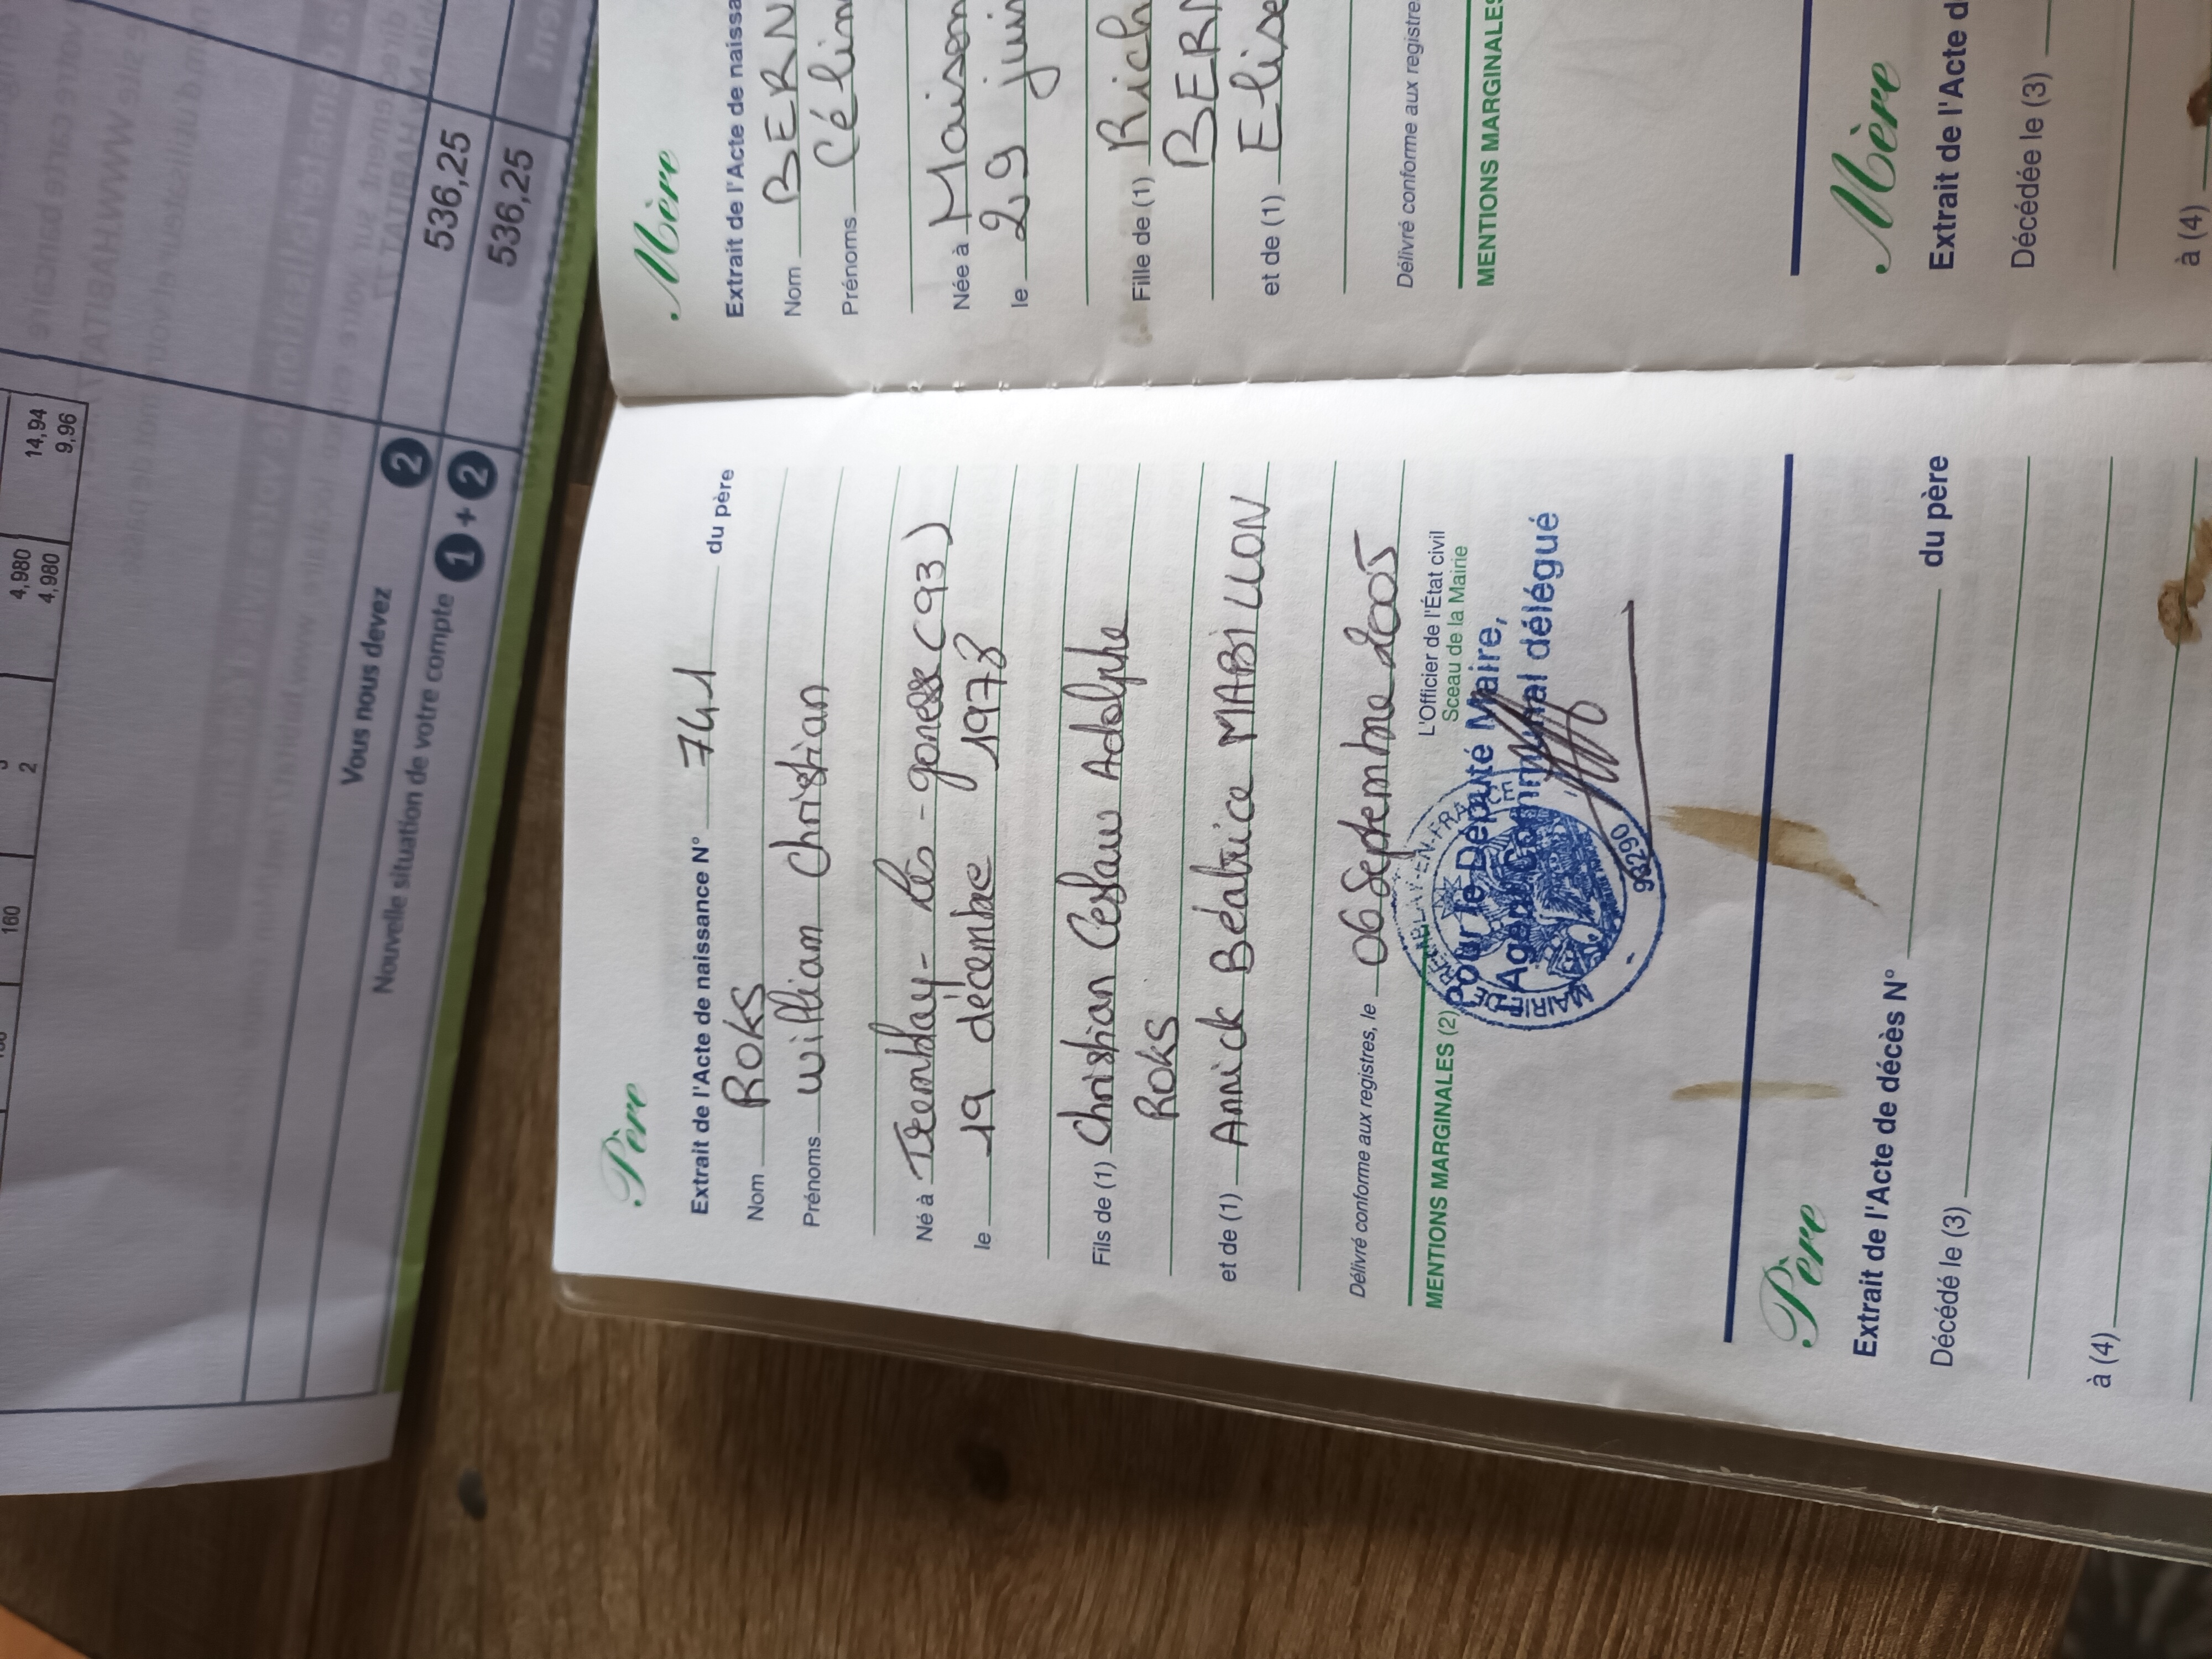 160
2
4,980
14,94
4,980
9,96
Vous nous devez 2 536,25
Nouvelle situation de votre compte 1 + 2 536,25
Père
Extrait de l'Acte de naissance N° 741 du père
Nom ROKS
Prénoms William Christian
Né à Tremblay-lès-gonesse (93)
le 19 décembre 1978
Fils de (1) Christian Ceslaw Adolphe
ROKS
et de (1) Annick Béatrice MABILLON
Délivré conforme aux registres, le 06 Septembre 2005
MENTIONS MARGINALES (2)
L'Officier de l'État civil
Sceau de la Mairie
Pour le Député Maire,
L'Agent Communal délégué
MAIRIE DE TREMBLAY-EN-FRANCE
93290
Père
Extrait de l'Acte de décès N° du père
Décédé le (3)
à (4)
Mère
Extrait de l'Acte de naissa
Nom BERN
Prénoms Célin
Née à Maison
le 29 juin
Fille de (1) Rich
BERN
et de (1) Elise
Délivré conforme aux registre
MENTIONS MARGINALES
Mère
Extrait de l'Acte d
Décédée le (3)
à (4)